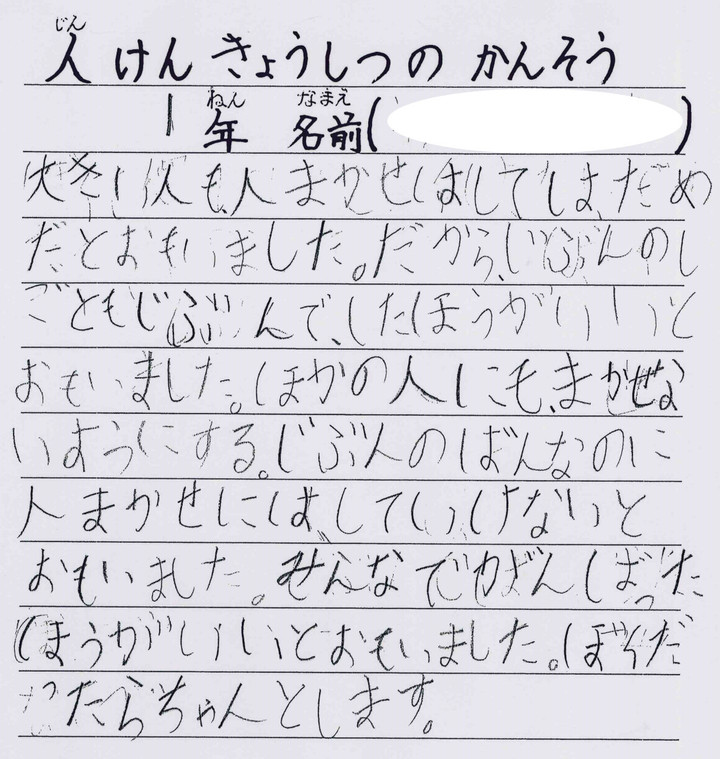 人けんきょうしつの かんそう
1年 名前( )
大きい人も人まかせはしてしま、だめ
だとおもいました。だから、じぶんのし
ごともじぶんで、したほうがいいと
おもいました。ほかの人にも、まかせな
いようにする。じぶんのばんなのに
人まかせには、していけないと
おもいました。みんなでがんばった
ほうがいいとおもいました。ぼくだ
ったらちゃんとします。